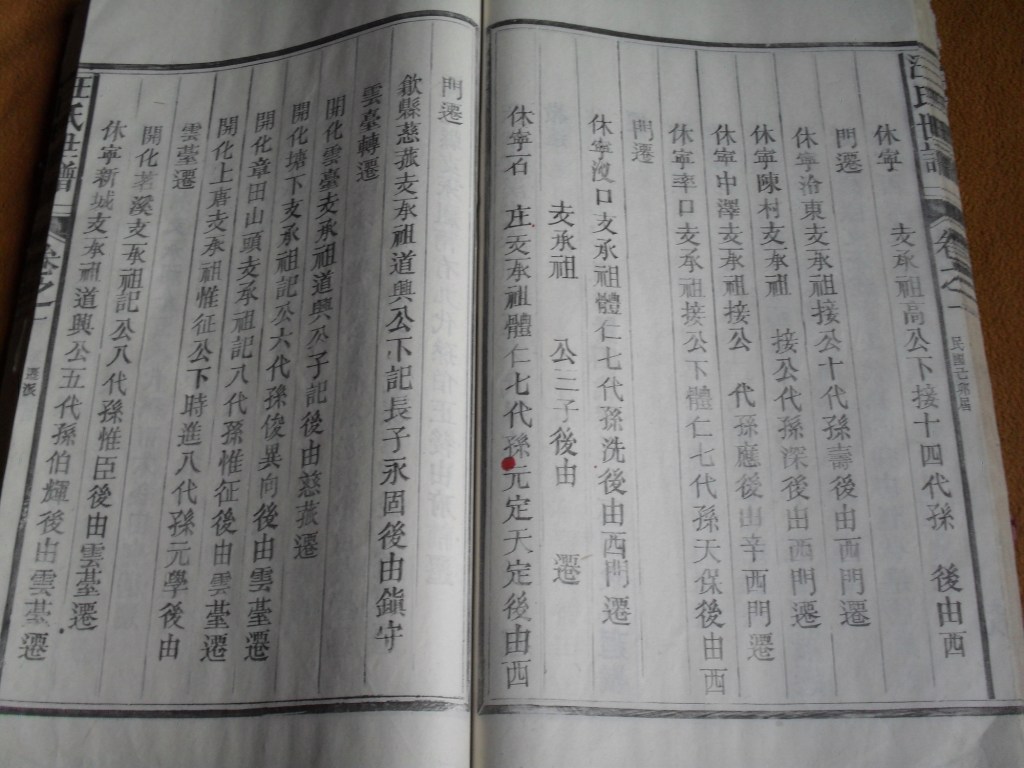 汪氏世譜
卷之一
休寧 支承祖高公下接十四代孫 後由西
門遷
休寧汾東支承祖接公十代孫壽後由西門遷
休寧陳村支承祖 接公代孫深後由西門遷
休寧中澤支承祖接公 代孫應後由辛西門遷
休寧率口支承祖接公下體仁七代孫天保後由西
門遷
休寧沒口支承祖體仁七代孫洗後由西門遷
支承祖 公三子後由 遷
休寧石 庄支承祖體仁七代孫元定天定後由西
門遷
歙縣慈菰支承祖道興公下記長子永固後由鎮守
雲臺轉遷
開化雲臺支承祖道興公子記後由慈菰遷
開化塘下支承祖記公六代孫俊異向後由雲臺遷
開化章田山頭支承祖記八代孫惟征後由雲臺遷
開化上唐支承祖惟征公下時進八代孫元學後由
雲臺遷
開化茗溪支承祖記公八代孫惟臣後由雲臺遷
休寧新城支承祖道興公五代孫伯輝後由雲臺遷
汪氏世譜
卷之一